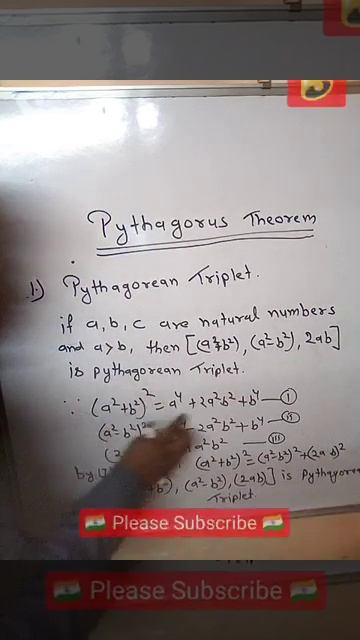 Pythagorus Theorem
1) Pythagorean Triplet.
if a, b, c are natural numbers
and a>b, then [(a²+b²), (a²-b²), 2ab]
is pythagorean Triplet.
∵ (a²+b²)² = a⁴ + 2a²b² + b⁴ — (i)
(a²-b²)² 2a²b² + b⁴ — (ii)
(2 a²b² — (iii)
by (a²+b²)² = (a²-b²)² + (2ab)²
(a²-b²), (2ab)] is Pythagorean
Triplet.
🇮🇳 Please Subscribe 🇮🇳
🇮🇳 Please Subscribe 🇮🇳